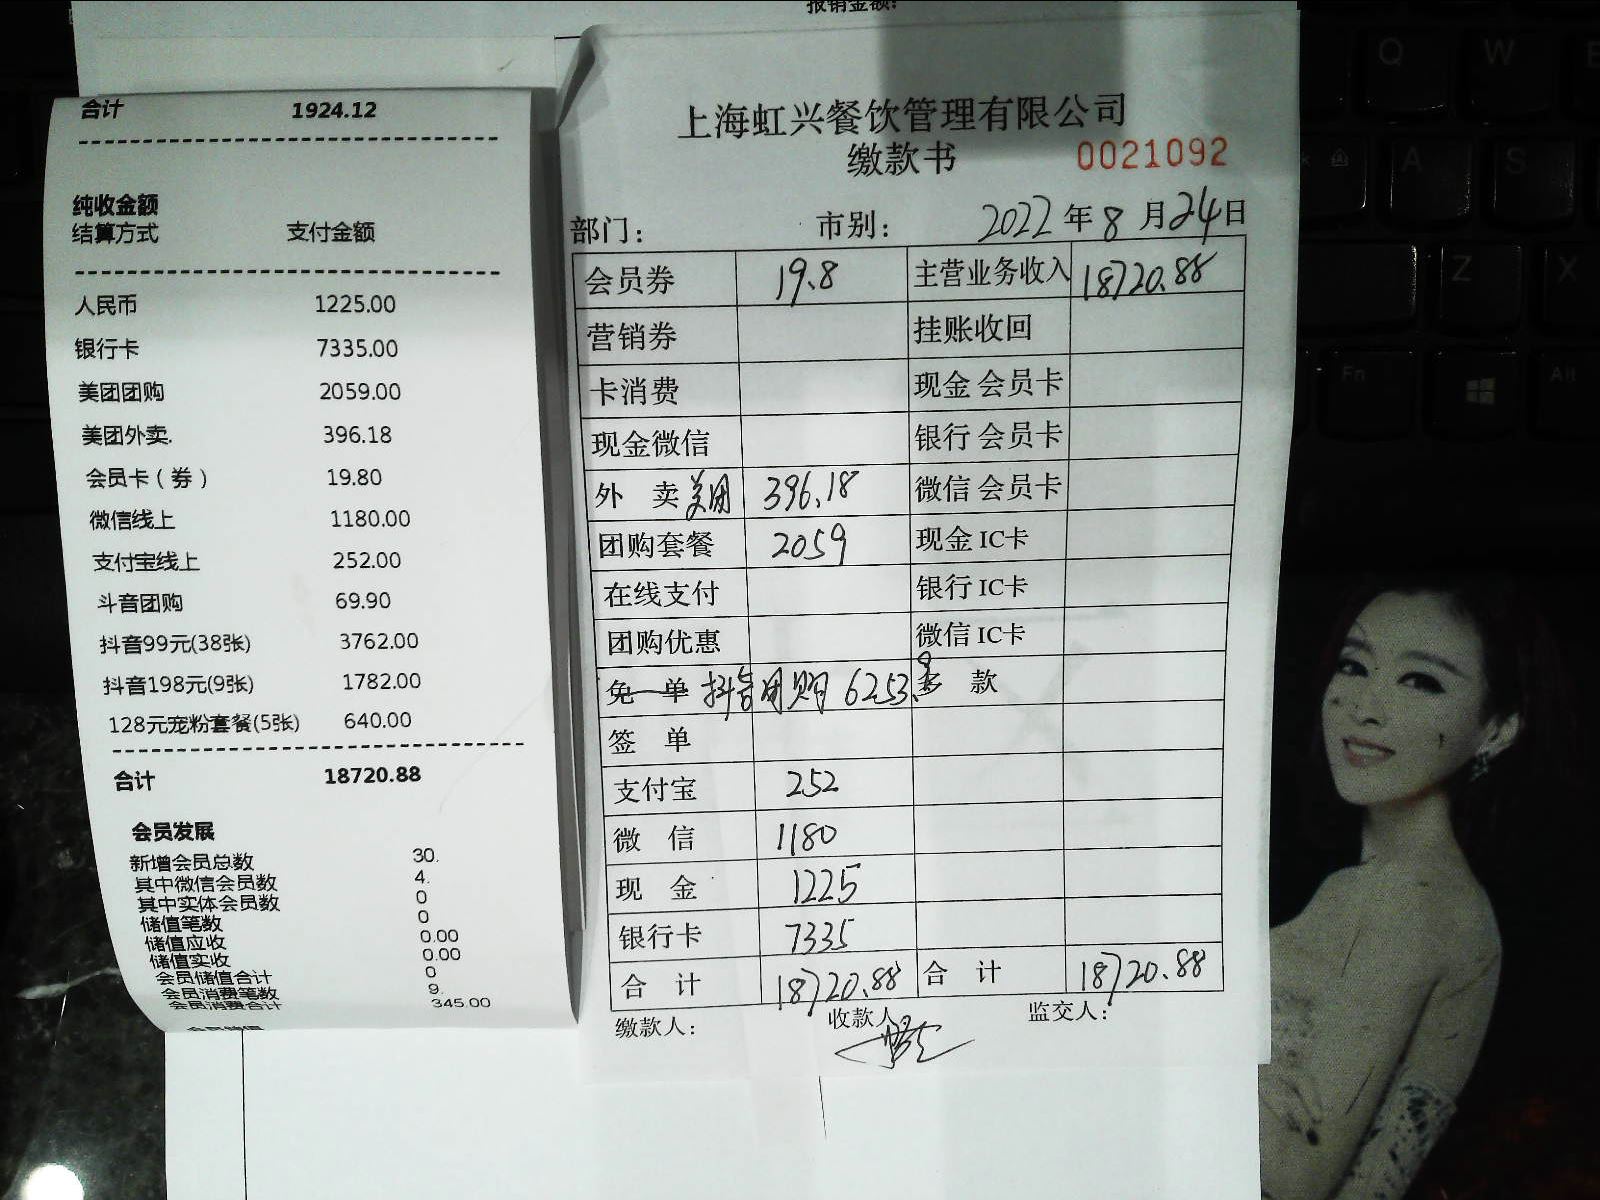 报销金额:
合计 1924.12
纯收金额
结算方式 支付金额
人民币 1225.00
银行卡 7335.00
美团团购 2059.00
美团外卖. 396.18
会员卡（券） 19.80
微信线上 1180.00
支付宝线上 252.00
斗音团购 69.90
抖音99元(38张) 3762.00
抖音198元(9张) 1782.00
128元宠粉套餐(5张) 640.00
合计 18720.88
会员发展
新增会员总数 30.
其中微信会员数 4.
其中实体会员数 0
储值笔数 0
储值应收 0.00
储值实收 0.00
会员储值合计 0
会员消费笔数 9.
会员消费合计 345.00
上海虹兴餐饮管理有限公司
缴款书 0021092
部门： 市别： 2022年8月24日
会员券 19.8 主营业务收入 18720.88
营销券 挂账收回
卡消费 现金 会员卡
现金微信 银行 会员卡
外 卖 美团 396.18 微信 会员卡
团购套餐 2059 现金 IC卡
在线支付 银行 IC卡
团购优惠 微信 IC卡
免 单 抖音团购 6253.9 多 款
签 单
支付宝 252
微 信 1180
现 金 1225
银行卡 7335
合 计 18720.88 合 计 18720.88
缴款人： 收款人 监交人：
Q W
A S
Z X
Fn Alt